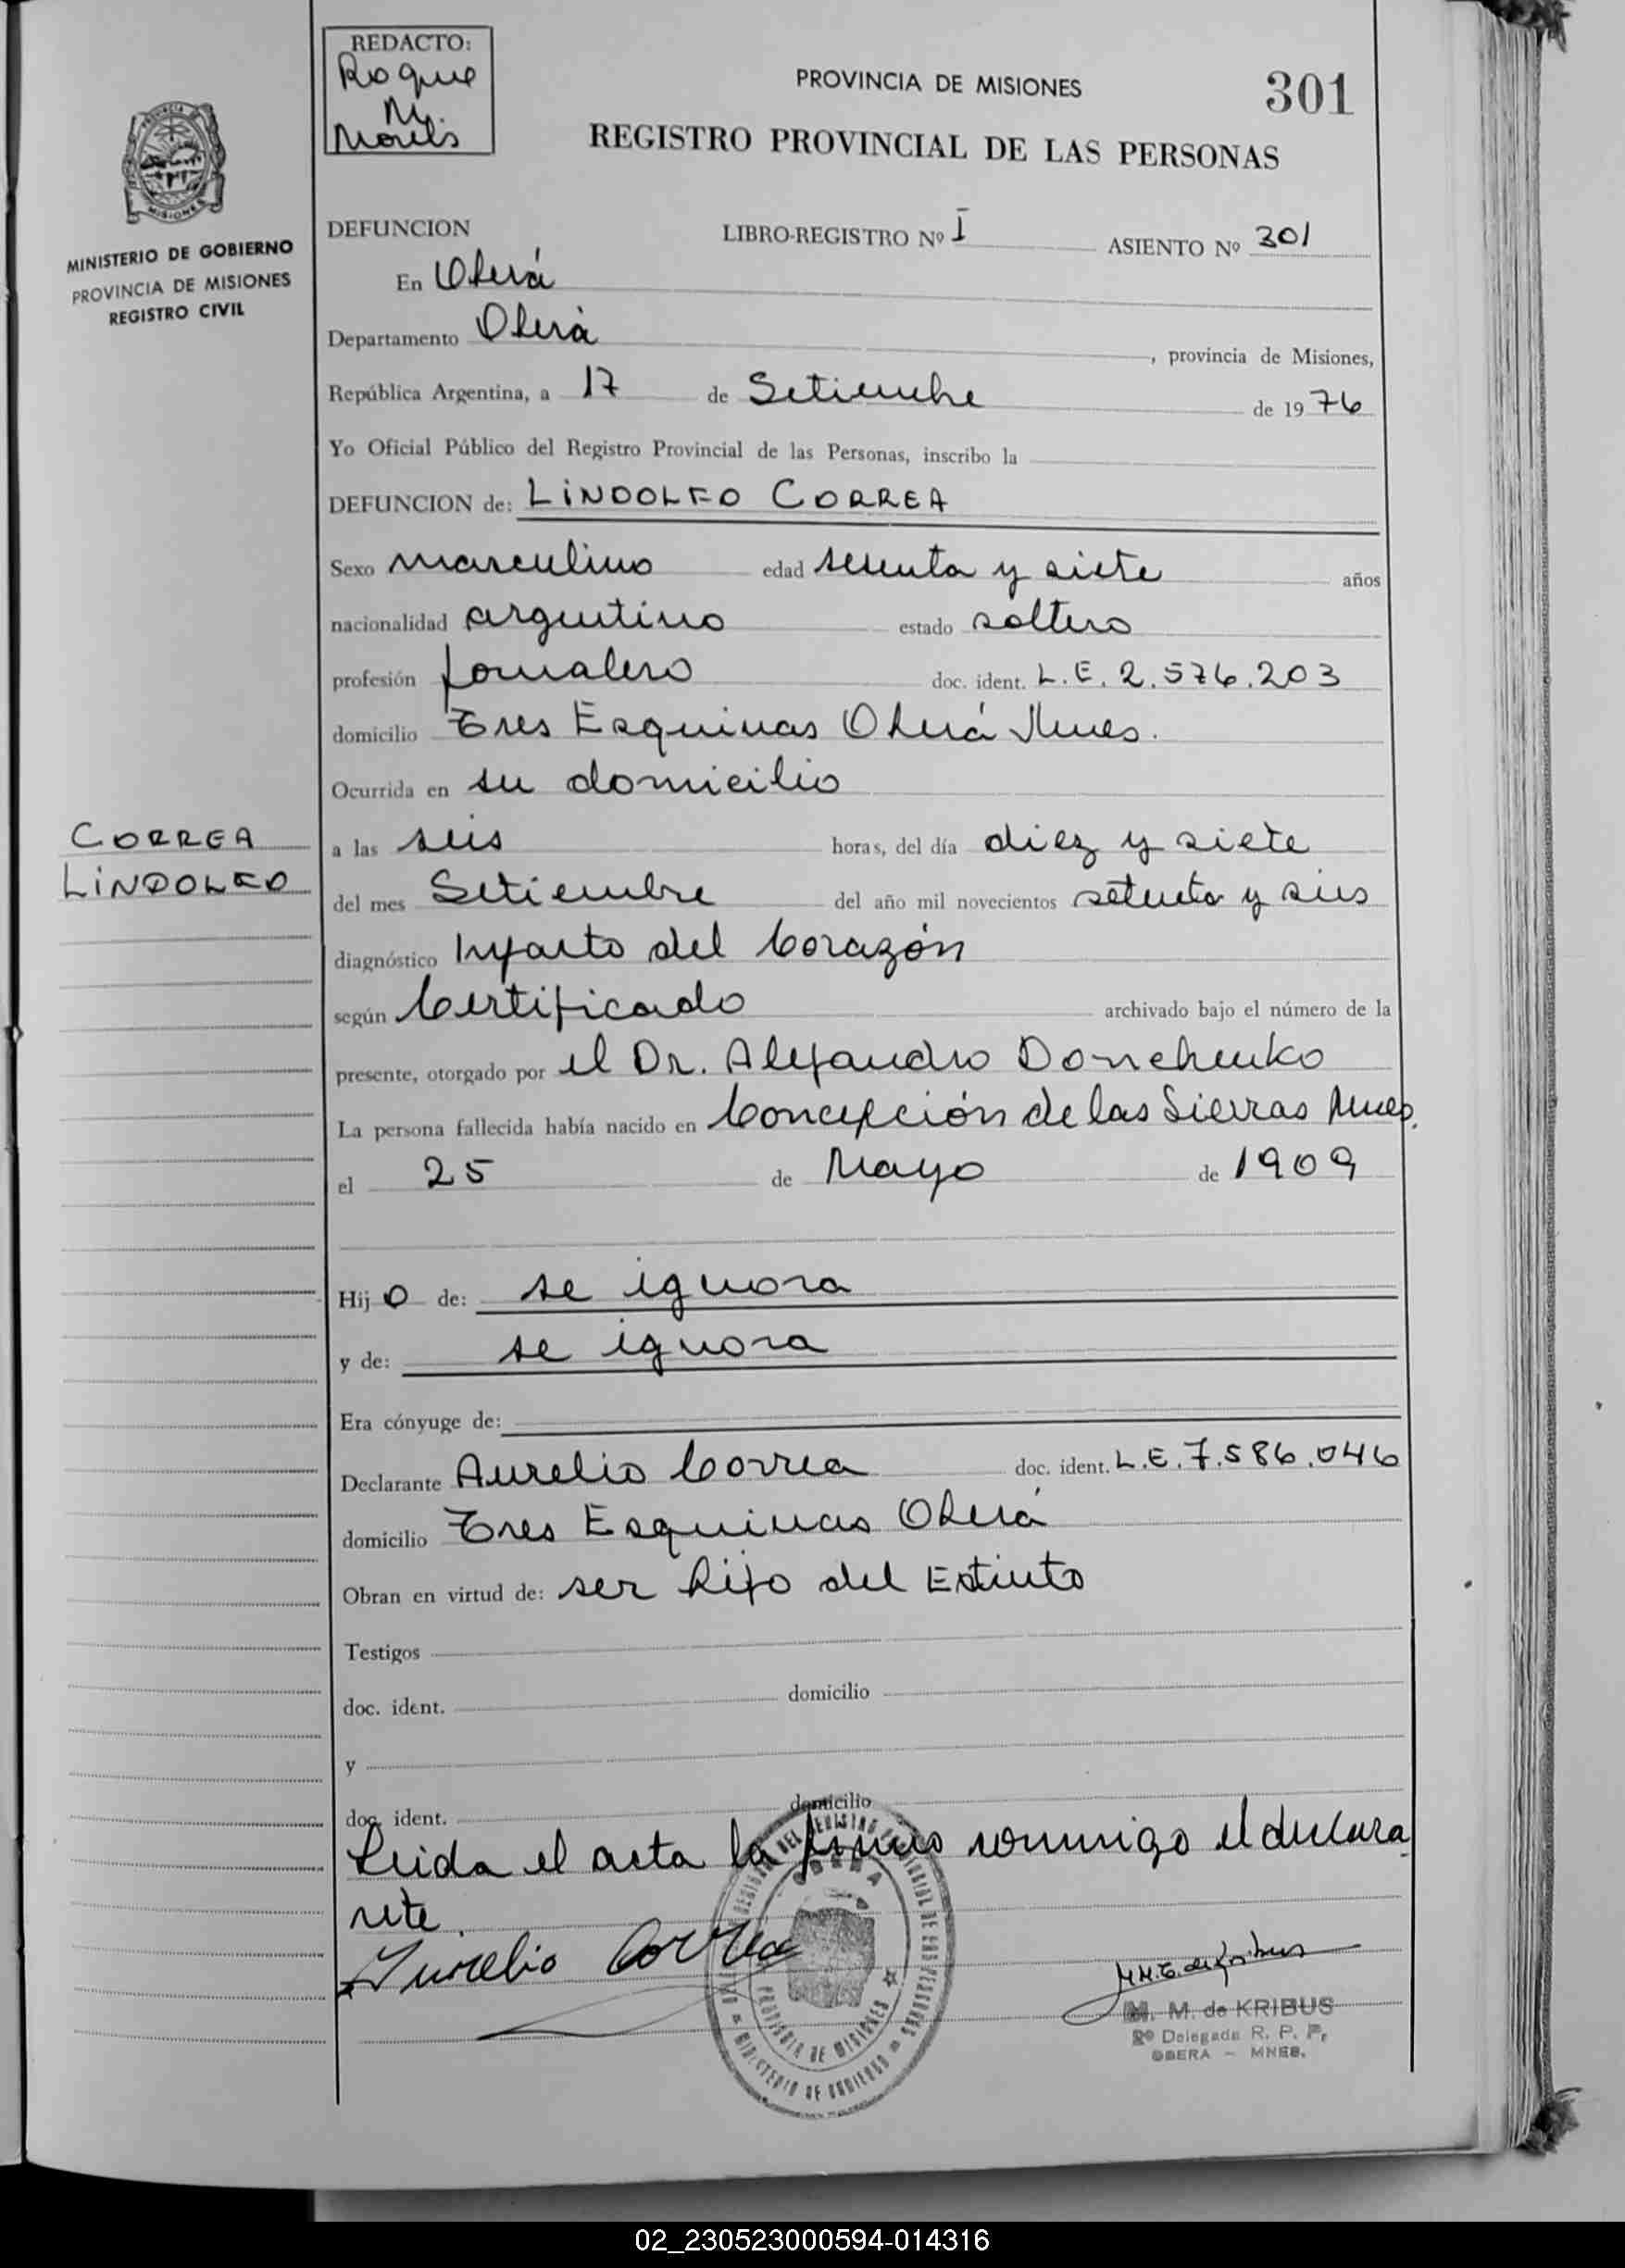 REDACTO:
Roque
M.
301
PROVINCIA DE MISIONES
REGISTRO PROVINCIAL DE LAS PERSONAS
MINISTERIO DE GOBIERNO
PROVINCIA DE MISIONES
REGISTRO CIVIL
DEFUNCION LIBRO-REGISTRO Nº I ASIENTO Nº 301
En Oberá
Departamento Oberá, provincia de Misiones,
República Argentina, a 17 de Setiembre de 1976
Yo Oficial Público del Registro Provincial de las Personas, inscribo la
DEFUNCION de: LINDOLFO CORREA
Sexo masculino edad sesenta y siete años
nacionalidad argentino estado soltero
profesión Jornalero doc. ident. L.E. 2.576.203
domicilio Tres Esquinas Oberá Mnes.
Ocurrida en su domicilio
CORREA
LINDOLFO
a las seis horas, del día diez y siete
del mes Setiembre del año mil novecientos setenta y seis
diagnóstico Infarto del Corazón
según Certificado archivado bajo el número de la
presente, otorgado por el Dr. Alejandro Donchenko
La persona fallecida había nacido en Concepción de las Sierras Mnes.
el 25 de Mayo de 1909
Hijo de: se ignora
y de: se ignora
Era cónyuge de:
Declarante Aurelio Correa doc. ident. L.E. 7.586.046
domicilio Tres Esquinas Oberá
Obran en virtud de: ser hijo del Extinto
Testigos
doc. ident. domicilio
y
doc. ident. domicilio
Leida el acta la firma conmigo el declara
nte.
Aurelio Correa
M. M. de KRIBUS
2º Delegada R. P. P.
OBERA - MNES.
02_230523000594-014316